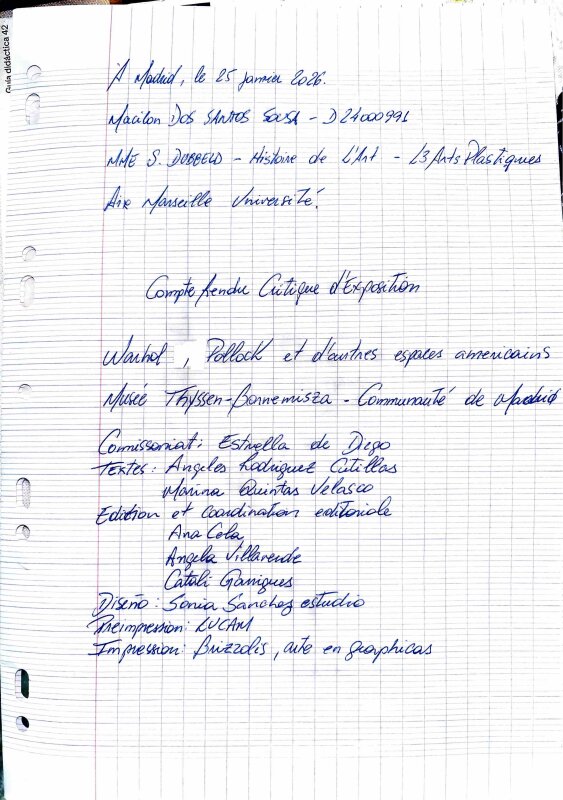 Guía didáctica 42
A Madrid, le 25 janvier 2026.
Macilon DOS SANTOS SOUSA - D24000991
MME S. DUBBELD - Histoire de L'Art - L3 Arts Plastiques
Aix Marseille Université.
Compte Rendu Critique d'Exposition
Warhol, Pollock et d'autres espaces americains
Musée Thyssen-Bornemisza - Communauté de Madrid
Comissariat: Estrella de Diego
Textes: Angeles Rodriguez Cutillas
Marina Quintas Velasco
Edition et coordination editoriale
Ana Cela
Angela Villaverde
Catali Garrigues
Diseño: Sonia Sanchez estudio
Preimpression: LUCAM
Impression: Brizzolis, arte en graphicas